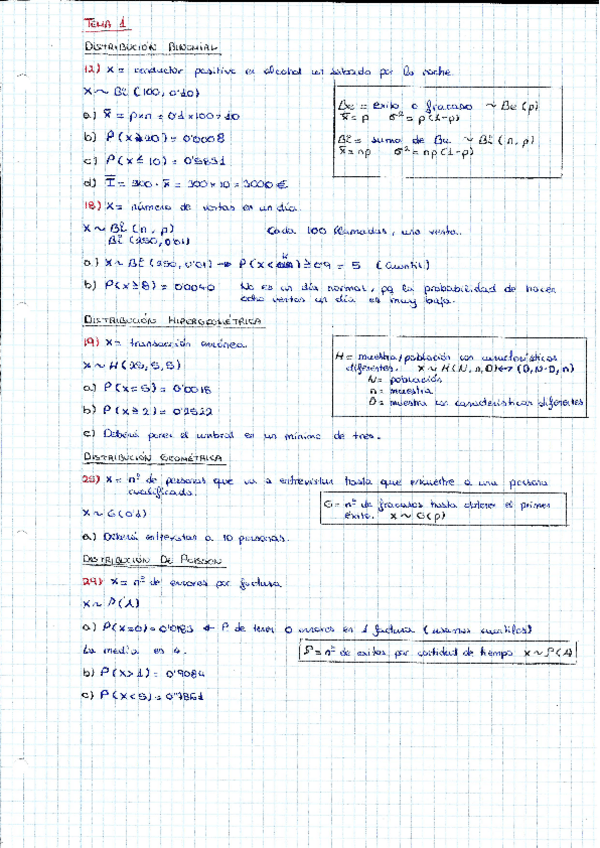 TEMA 1
DISTRIBUCIÓN BINOMIAL
12) X = conductor positivo en alcohol un sábado por la noche.
X ~ Bi (100, 0'10)
a) x̄ = p×n = 0'1×100 = 10
b) P(X≥20) = 0'0008
c) P(X ≤ 10) = 0'5831
d) Ī = 300 · x̄ = 300×10 = 3000 €
Be = éxito o fracaso ~ Be (p)
x̄ = p σ² = p(1-p)
Bi = suma de Be ~ Bi (n, p)
x̄ = np σ² = np(1-p)
18) X = número de ventas en un día.
X ~ Bi (n, p) Cada 100 llamadas, una venta.
Bi (250, 0'01)
a) X ~ Bi (250, 0'01) → P(X< ) ≥ 0'9 = 5 (Cuantil)
b) P(X≥8) = 0'0040 No es un día normal, pq la probabilidad de hacer
ocho ventas un día es muy baja.
DISTRIBUCIÓN HIPERGEOMÉTRICA
19) X = transacción errónea.
X ~ H (25, 5, 5)
a) P(X=5) = 0'0016
b) P(X≥2) =
c) Debería poner el umbral en un mínimo de tres.
H = muestra/población con características
diferentes. X ~ H (N, n, D) ↔ (D, N-D, n)
N = población
n = muestra
D = muestra con características diferentes
DISTRIBUCIÓN GEOMÉTRICA
25) X = nº de personas que va a entrevistar hasta que encuentre a una persona
cualificada.
X ~ G (0'1)
G = nº de fracasos hasta obtener el primer
éxito. X ~ G (p)
a) Deberá entrevistar a 10 personas.
DISTRIBUCIÓN DE POISSON
29) X = nº de errores por factura
X ~ P (λ)
a) P(X=0) = 0'0183 ← P de tener 0 errores en 1 factura (usamos cuantiles)
La media es 4.
P = nº de éxitos por cantidad de tiempo X ~ P (λ)
b) P(X>1) = 0'9084
c) P(X<5) =